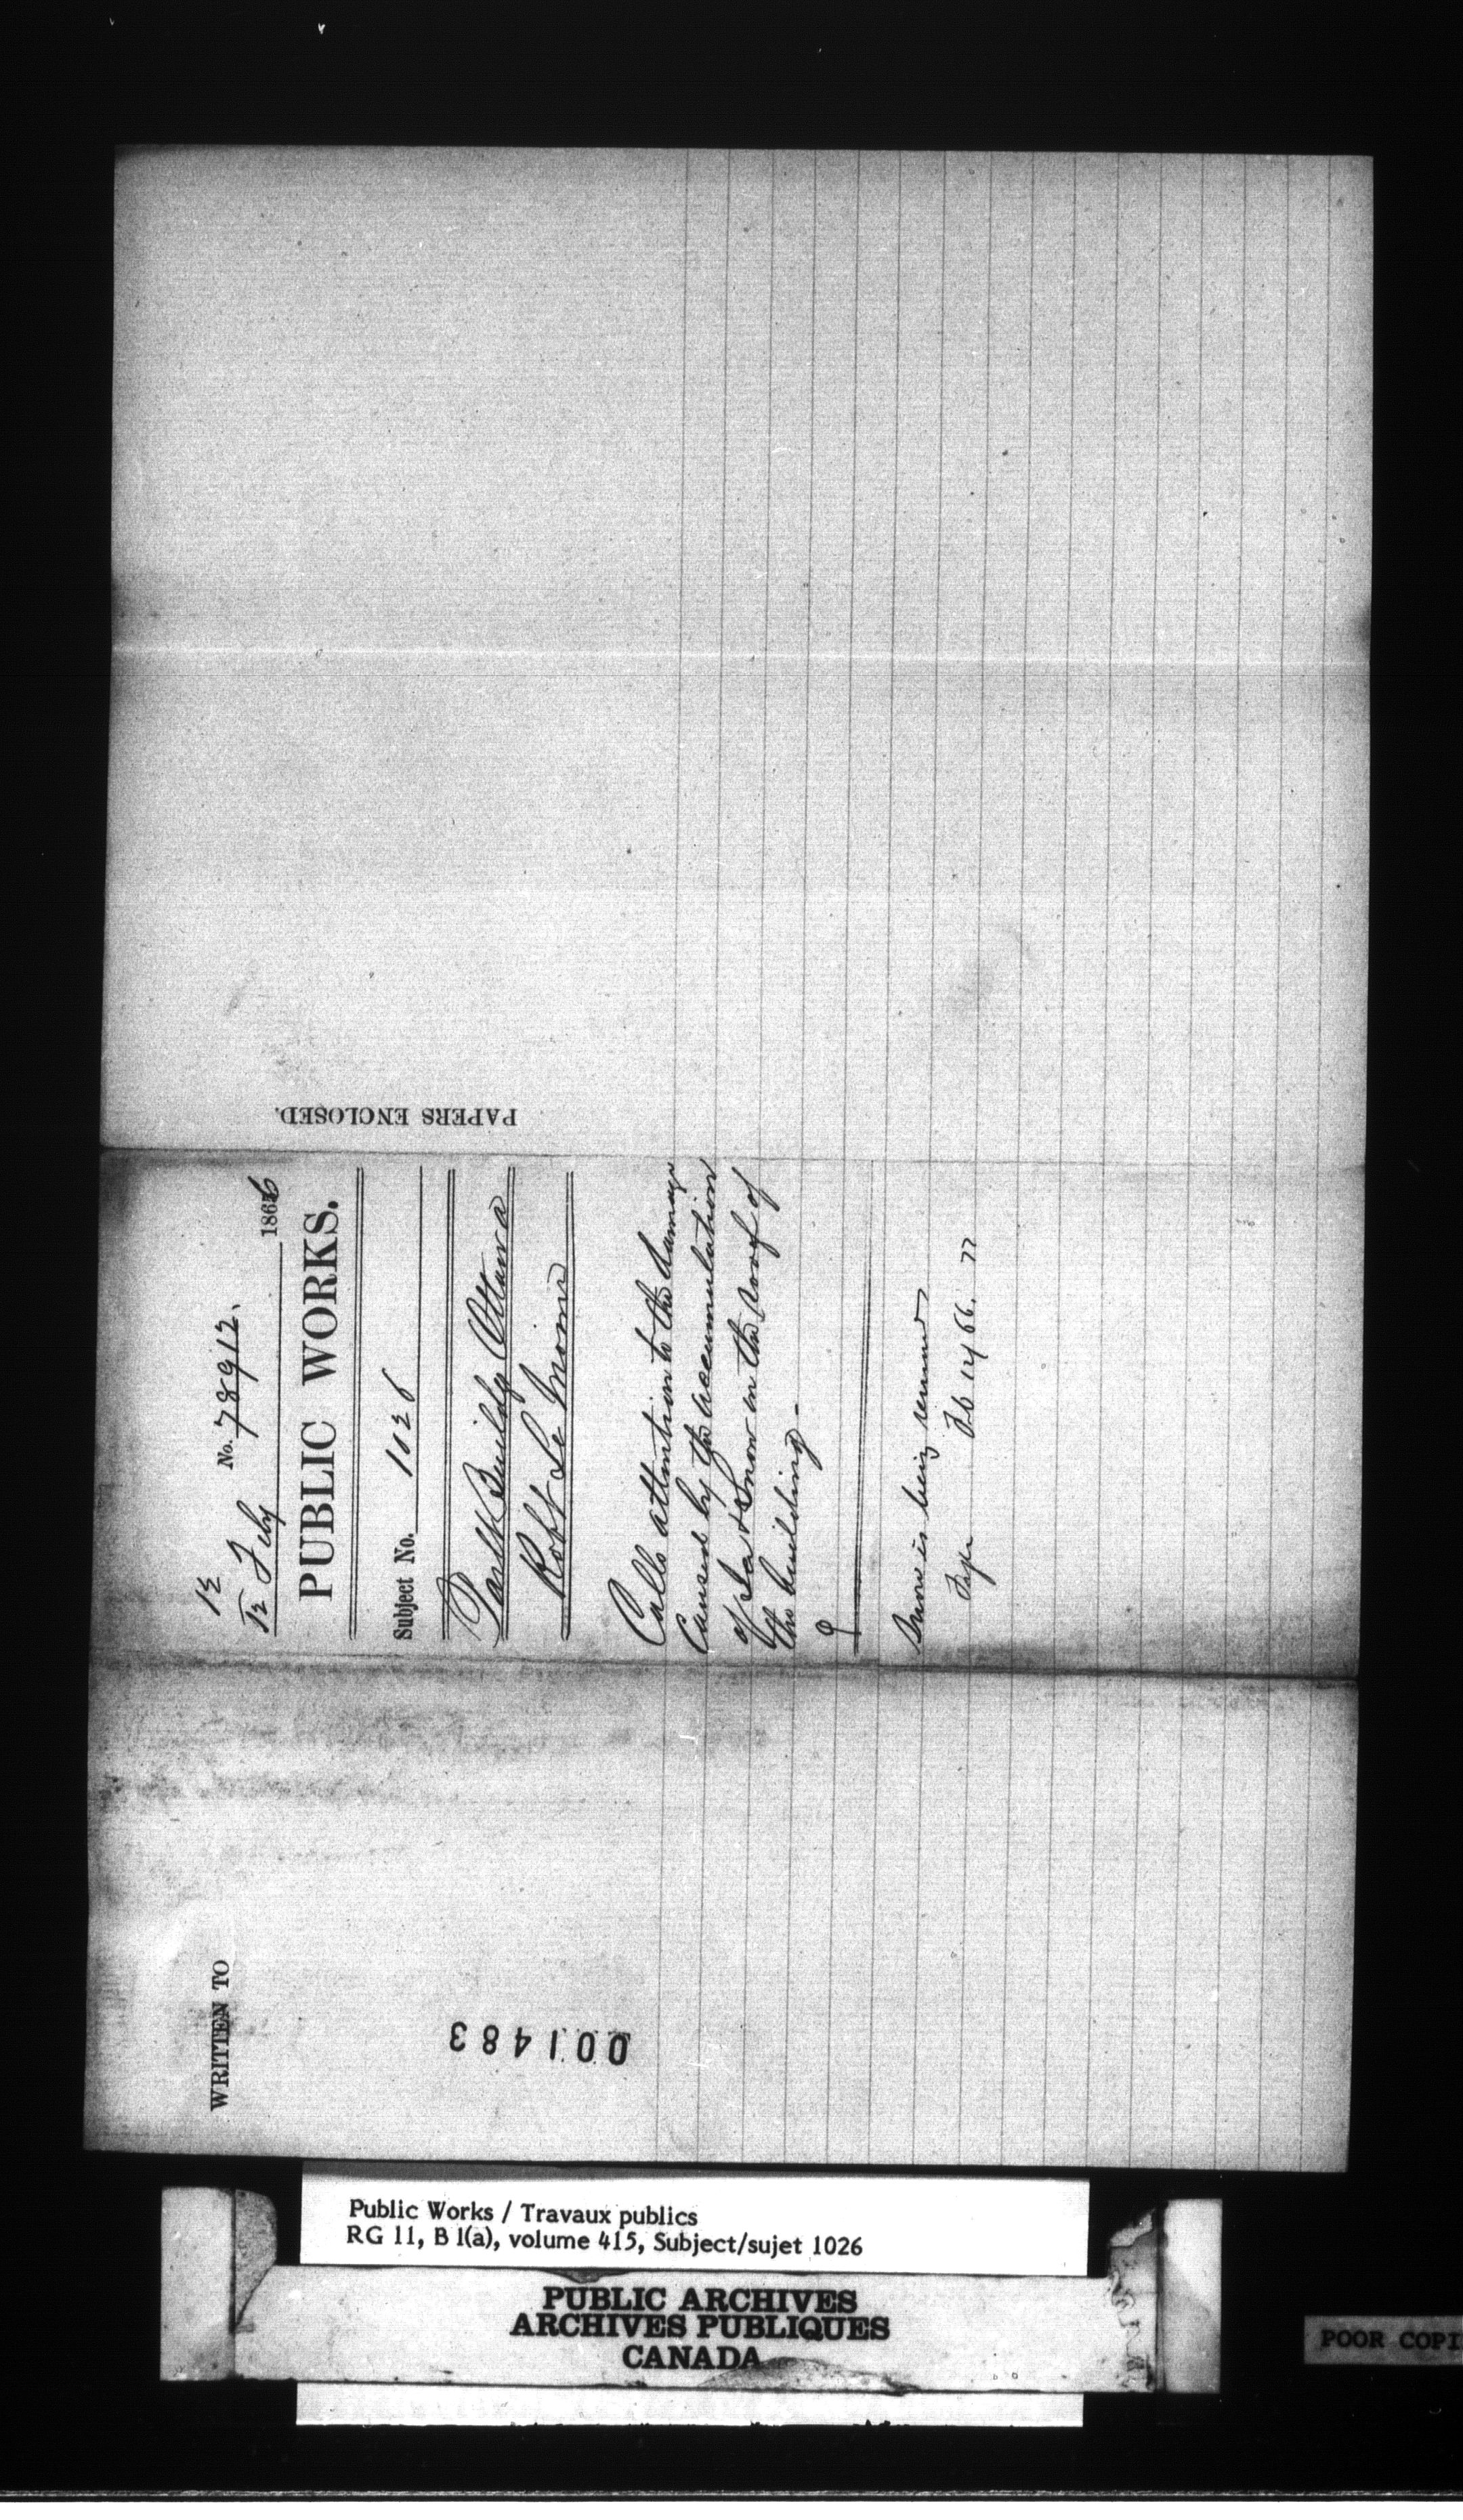 12
12 Feby No. 78912. 1866
PUBLIC WORKS.
Subject No. 1026
Parlt Buildg Ottawa
Robt Le Moine
Calls attention to the damage
caused by the accumulation
of Ice & Snow on the roof of
the building -
Snow is being removed
Fb 14 66.
PAPERS ENCLOSED.
WRITTEN TO
001483
Public Works / Travaux publics
RG 11, B 1(a), volume 415, Subject/sujet 1026
PUBLIC ARCHIVES
ARCHIVES PUBLIQUES
CANADA
POOR COPI